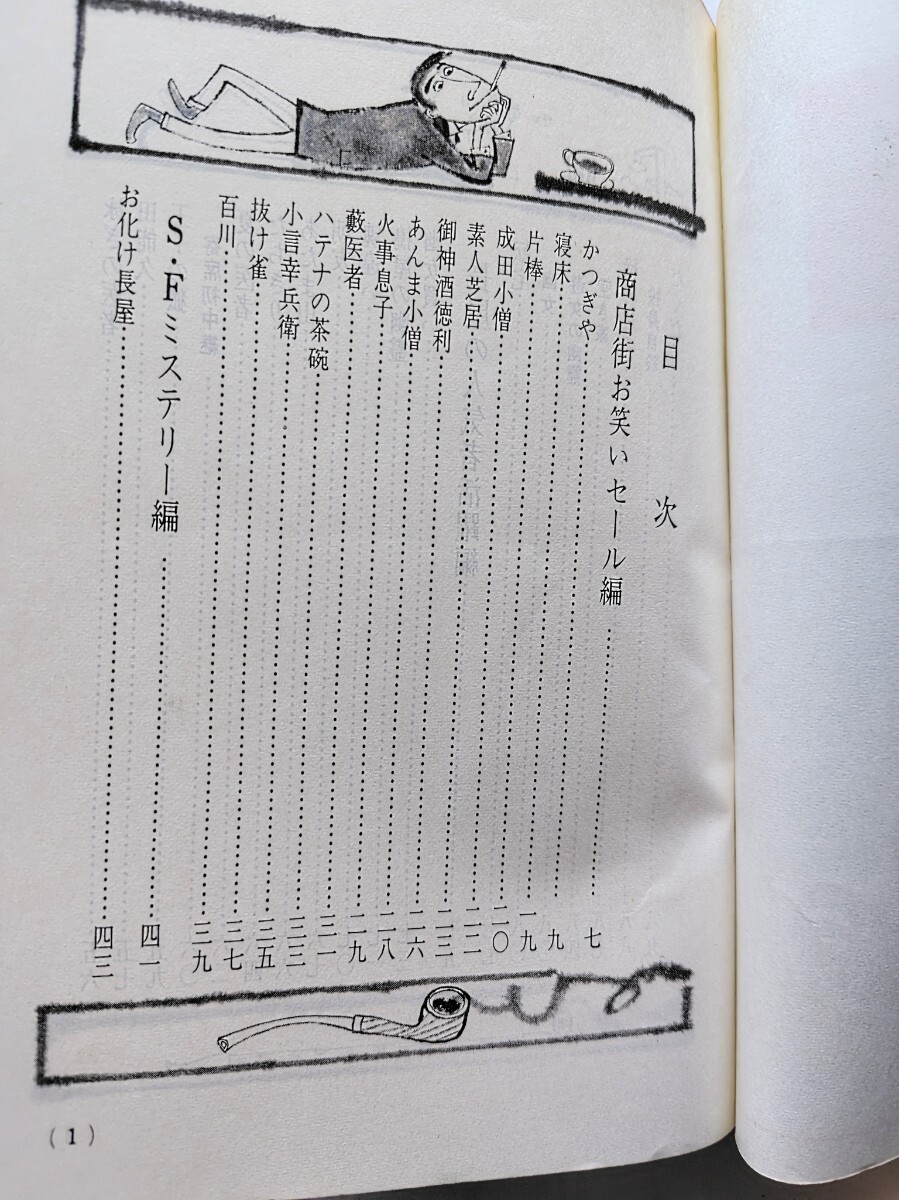 目次
商店街お笑いセール編……七
かつぎや……九
寝床……一九
片棒……二〇
成田小僧……二二
素人芝居……二三
御神酒徳利……二六
あんま小僧……二八
火事息子……二九
藪医者……三一
ハテナの茶碗……三三
小言幸兵衛……三五
抜け雀……三七
百川……三九
S・Fミステリー編……四一
お化け長屋……四三
(1)